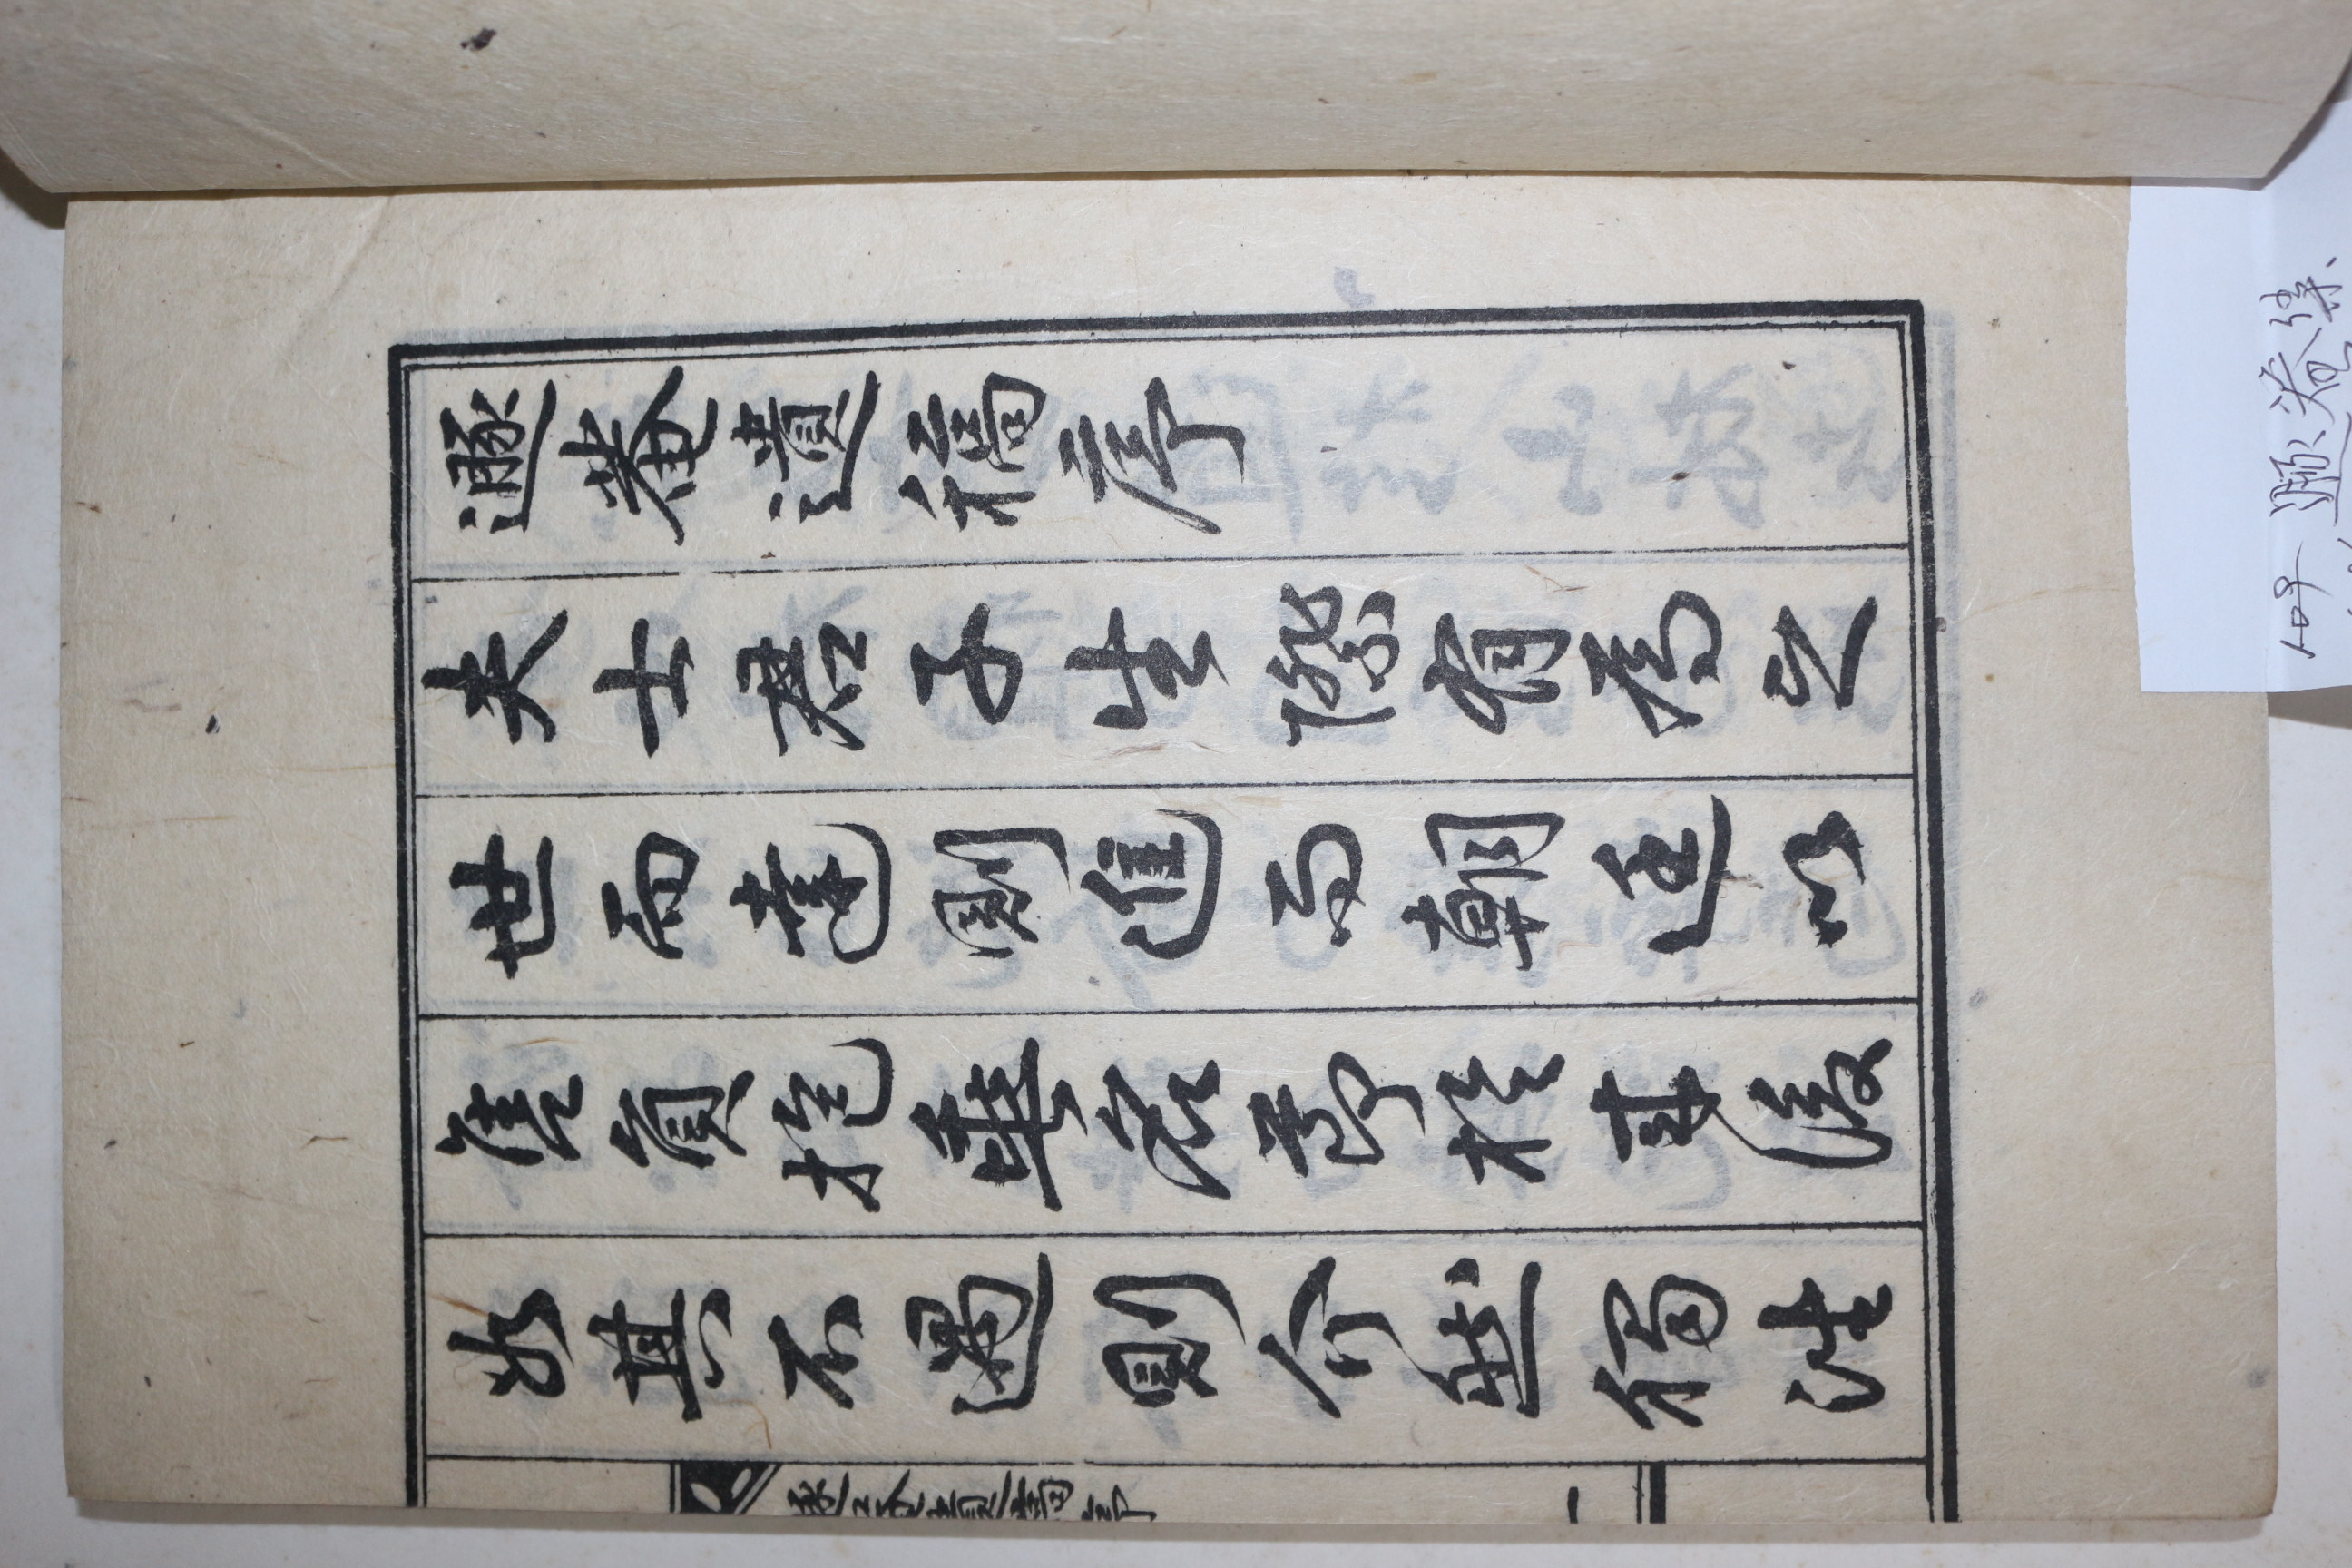 遯菴遺稿序
夫士君子生際有爲之
世而達則進而朝廷以
售負抱垂名節於來後
如其不遇則介然獨注
遯菴遺稿序
一
遯菴集